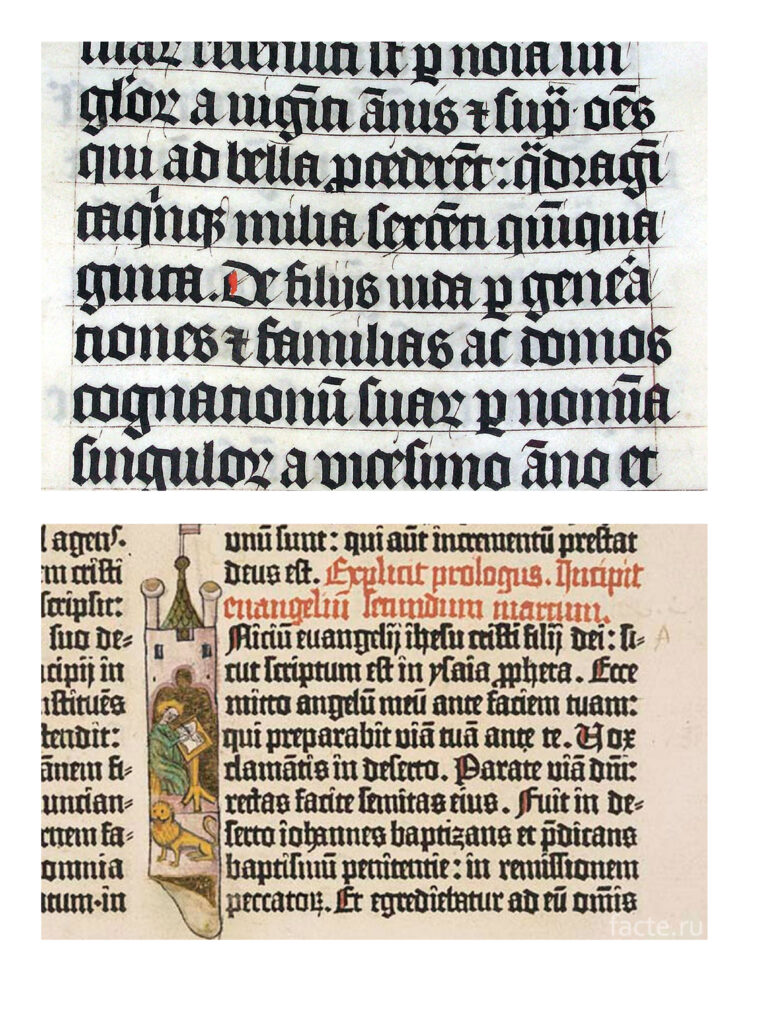 glor̄ a uiginti ānis ⁊ sup̄· oēs
qui ad bella ꝓcederēt: q̄dragī
taqinqꝫ milia sexcēti quīqua
ginta. De filijs iuda ꝑ gen̄ea
tiones ⁊ familias ac domos
cognationū suaꝝ ꝑ nomīa
singuloꝝ a vicesimo āno et
l agens.
m cristi
scripsit:
suo de-
cipij in
stituēs
tendit:
ānem fi-
uncian-
rnem fa-
omnia
tum·in
unū sunt: qui aūt incrementū prestat
deus est. Explicit prologus. Incipit
euangeliū secundum marcum.
Niciū euangelij ihesu cristi filij dei: si-
cut scriptum est in ysaia ꝓpheta. Ecce
mitto angelū meū ante faciem tuam:
qui preparabit viā tuā ante te. Vox
clamātis in deserto. Parate viā dn̄i:
rectas facite semitas eius. Fuit in de-
serto iohannes baptizans et p̄dicans
baptismū penitentie: in remissionem
peccatoꝝ. Et egrediebatur ad eū om̄is
facte.ru